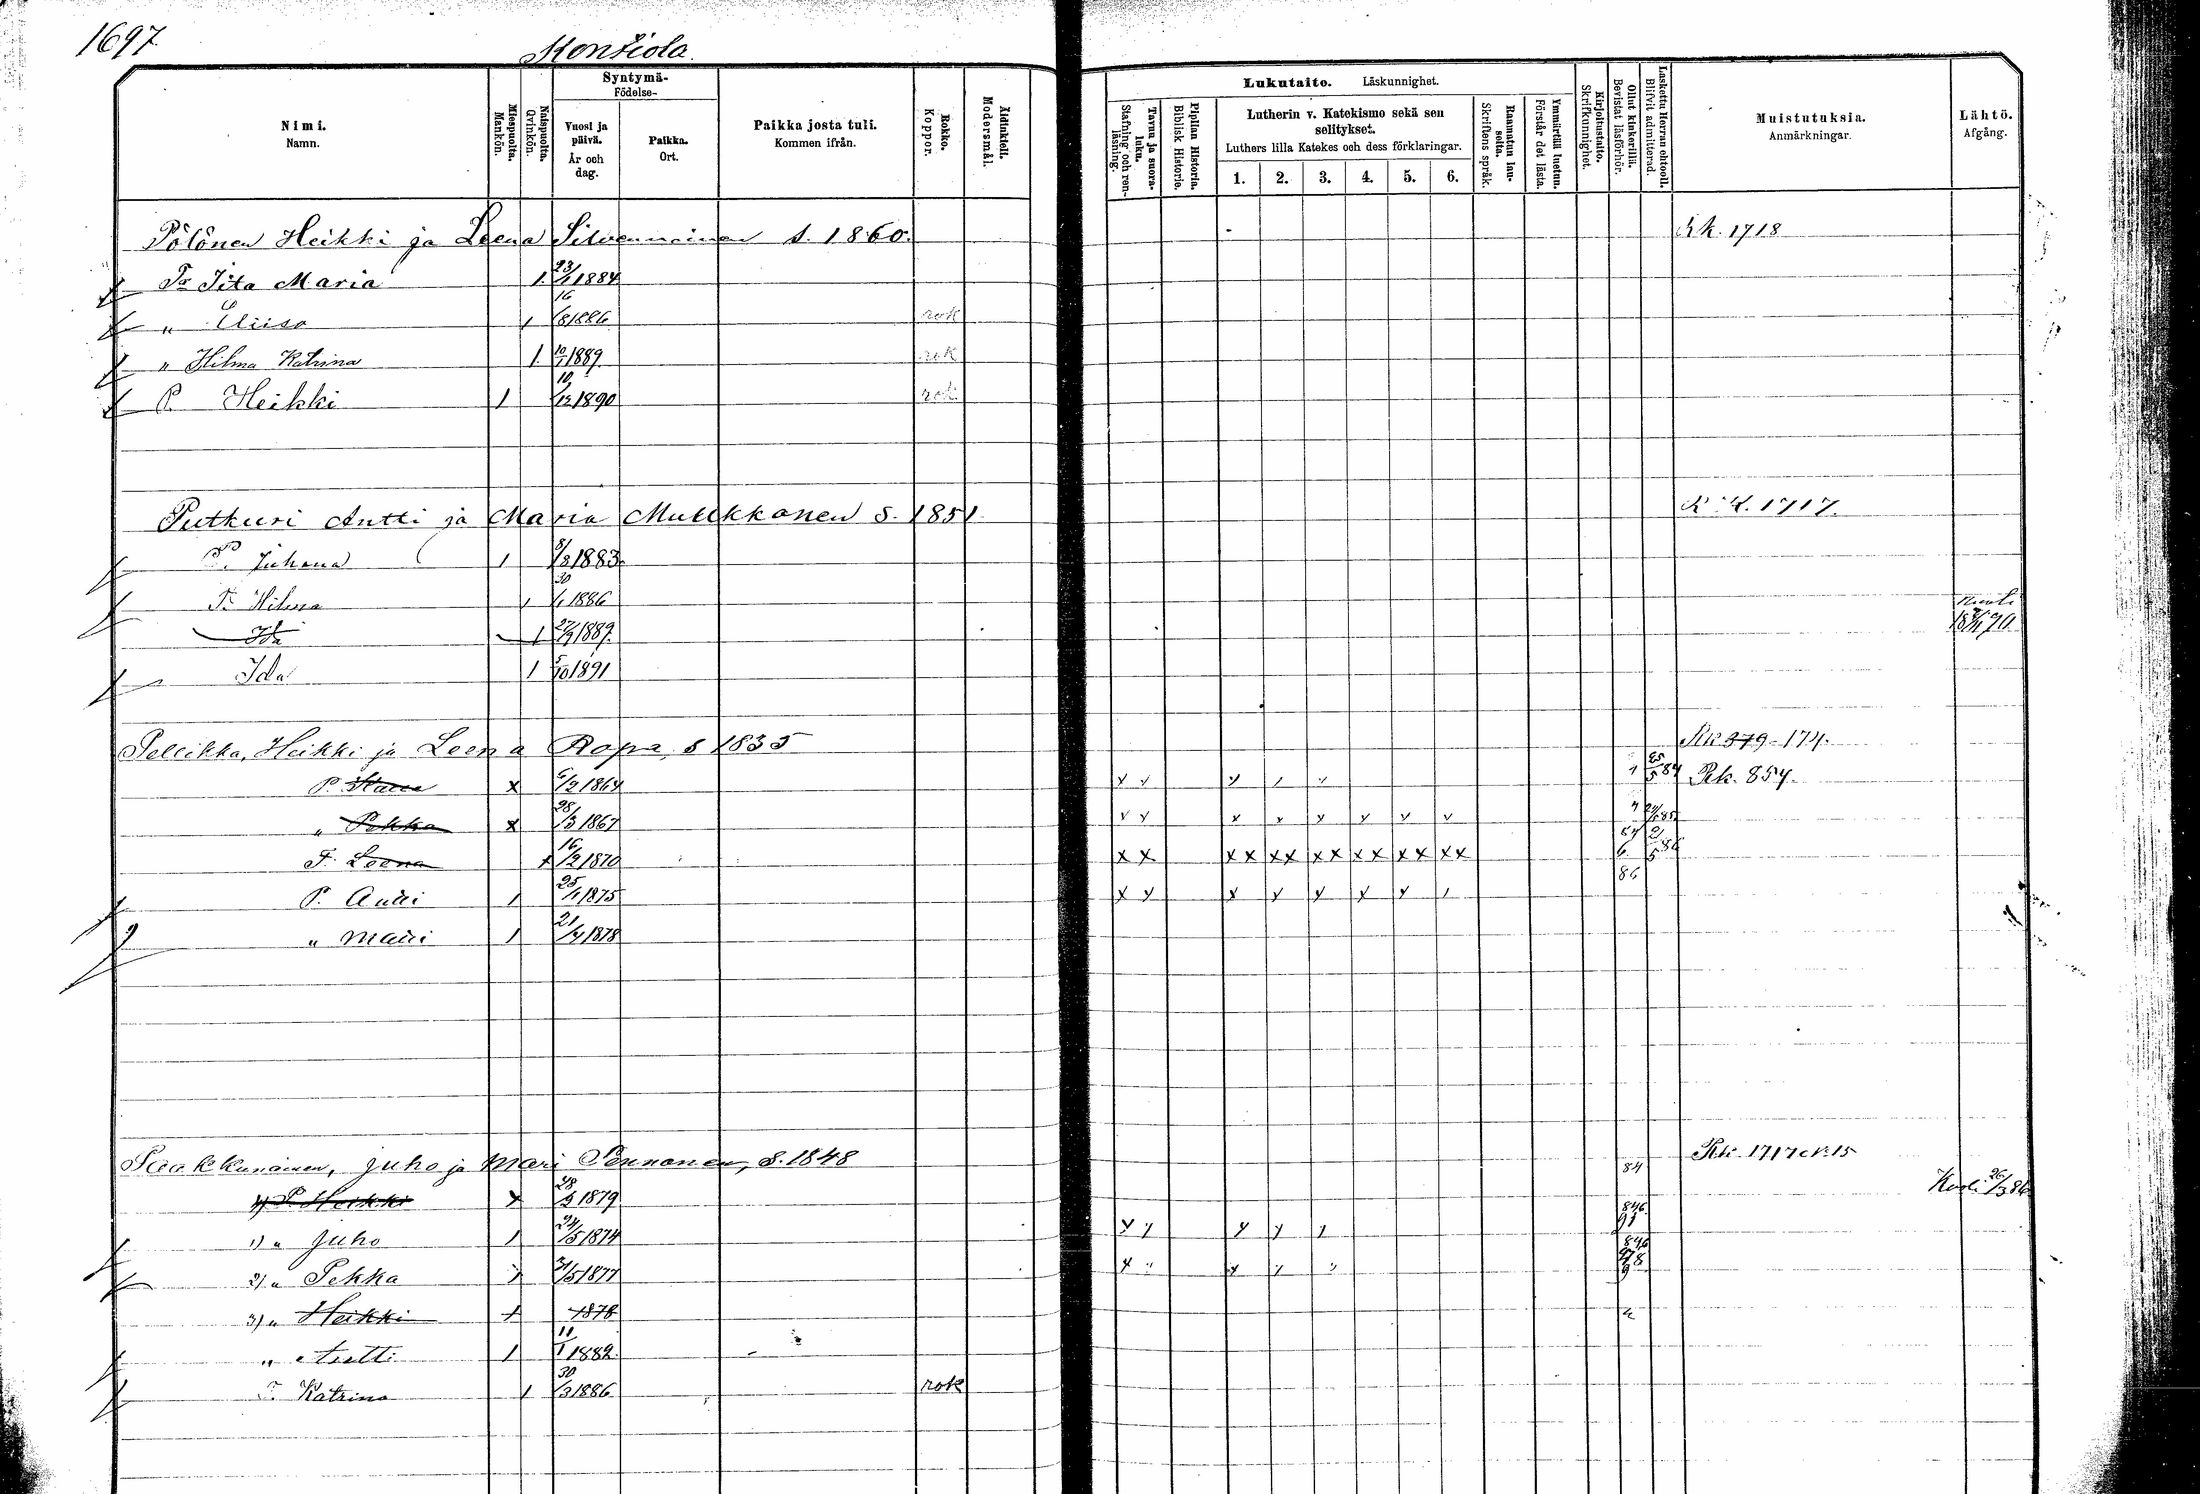 1697
Kontiola.
Nimi.
Namn.
Miespuolta.
Mankön.
Naispuolta.
Qvinkön.
Syntymä-
Födelse-
Vuosi ja päivä.
År och dag.
Paikka.
Ort.
Paikka josta tuli.
Kommen ifrån.
Rokko.
Koppor.
Äidinkieli.
Modersmål.
Lukutaito. Läskunnighet.
Tavua ja suora-luku.
Stafning och ren-läsning.
Piplian Historia.
Biblisk Historie.
Lutherin v. Katekismo sekä sen selitykset.
Luthers lilla Katekes och dess förklaringar.
1. 2. 3. 4. 5. 6.
Raamatun lau-seita.
Skriftens språk.
Ymmärtää luetun.
Förstår det lästa.
Kirjoitustaito.
Skrifkunnighet.
Ollut kinkerillä.
Bevistat läsförhör.
Laskettu Herran ehtooll.
Blifvit admitterad.
Muistutuksia.
Anmärkningar.
Lähtö.
Afgång.
Pölönen Heikki ja Leena Silvennoinen s. 1860. Rk. 1718
Tr Iita Maria 1. 23/1 1884
" Eliisa 1 16/8 1886 rok
" Hilma Katrina 1. 10/1 1889. rok
P. Heikki 1 10/12 1890 rok
Putkuri Antti ja Maria Mutikkanen s. 1851 R.K. 1717.
P. Juhana 1 8/3 1883
T. Hilma 1 30/1 1886
Ida 1 27/9 1889. kuoli
Ida 1 5/10 1891
Pellikka, Heikki ja Leena Ropa, s 1835 Rk 379 - 174.
P. x 6/2 1864 v v v 1 25/5 84 Rk. 854.
" Pekka x 28/3 1867 v v v v v v v v
T. Leena x 16/2 1870 x x xx xx xx xx xx xx 86
P. Antti 1 25/1 1875 x y y y y y y 1
" Matti 1 21/4 1878
Paakkunainen, Juho ja Mari Pennonen, s. 1848 Rk. 1717
P. Heikki x 28/2 1879 84 Kuoli 26/3 86
1) " Juho 1 24/5 1874 y y y y y
2) " Pekka 31/5 1877
3) " Heikki + 1878
" Antti 1 11/1 1882.
T. Katrina 1 30/3 1886 rok